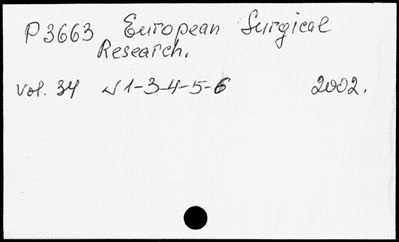 P3663 European Surgical
Research.
vol. 34 N1-3-4-5-6 2002.